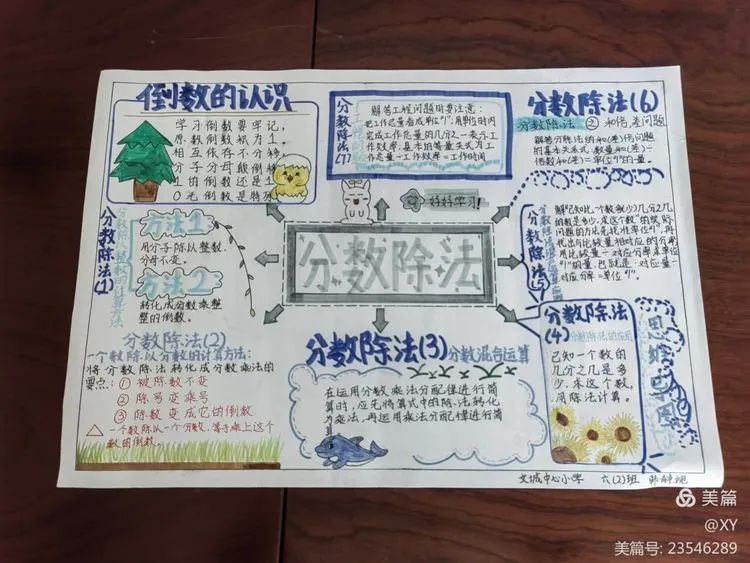 倒数的认识
学习倒数要牢记,
原数倒数积为1。
相互依存不分移,
分子分母颠倒移
1的倒数还是1
0无倒数是特殊
分数除法(7)
工程问题
解答工程问题时要注意:
把工作总量看成单位"1",用单位时间
完成工作总量的几分之一表示工
作效率,基本的等量关系式为工
作总量÷工作效率=工作时间
分数除法(6)
分数除法之和倍、差问题
解答分除法的和(差)倍问题
的基本关系式:数量和(差)÷
倍数和(差)=单位"1"的量。
好好学习!
分数除法
分数除法(1)
分数除以整数的计算方法
方法1
用分子除以整数,
分母不变。
方法2
转化成分数乘整
整的倒数。
分数除法(5)
解"已知比一个数多(少)几分之几
的数是多少,求这个数"的实际
问题的方法:先找准单位"1",再
找出与比较量相对应的分率
用比较量÷对应分率求单位
"1"的量,也就是:对应量÷
对应分率=单位"1"。
分数除法(2)
一个数除以分数的计算方法:
将分数除法转化成分数乘法的
要点:① 被除数不变
② 除号变乘号
③ 除数变成它的倒数
△ 一个数除以一个分数,等于乘上这个
数的倒数
分数除法(3)分数混合运算
在运用分数乘法分配律进行简
算时,应先将算式中的除法转化
为乘法,再运用乘法分配律进行简
算
分数除法
(4)分数除法的应用
已知一个数的
几分之几是多
少,求这个数,
用除法计算。
思维导图
文城中心小学 六(2)班
美篇
@XY
美篇号: 23546289